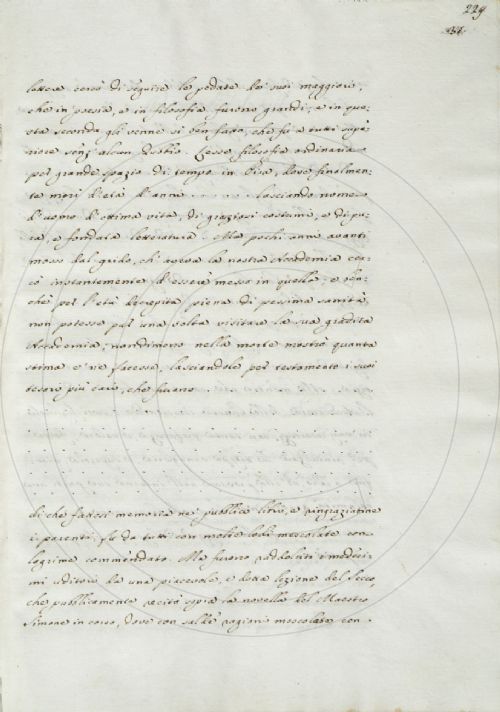 229
lettere cercò di seguire le pedate de' suoi maggiori,
che in poesia, e in filosofia furono grandi, e in que-
sta seconda gli venne sì ben fatto, che fu a tutti supe-
riore senz' alcun dubbio. Lesse filosofia ordinaria
per grande spazio di tempo in Pisa, dove finalmen-
te morì d'età d'anni lasciando nome
d'uomo d'ottima vita, di graziosi costumi, e di pu-
ra, e fondata letteratura. Ma pochi anni avanti
mosso dal grido, ch' aveva la nostra Accademia cer-
cò instantemente d'essere messo in quella, e ben-
chè per l'età decrepita piena di pessima sanità,
non potesse pur una volta visitare la sua gradita
Accademia, nondimeno nella morte mostrò quanta
stima e' ne facesse, lasciandole per testamento i suoi
tesori più cari, che furano
di che fattosi memoria ne' pubblici libri, e ringraziatine
i parenti, fu da tutti con molte lodi mescolate con
lagrime commendato. Ma furono raddolciti i medesi-
mi uditori da una piacevole, e dotta lezione del Secco,
che pubblicamente recitò sopra la novella del Maestro
Simone in corso, dove con salde ragioni mescolate con